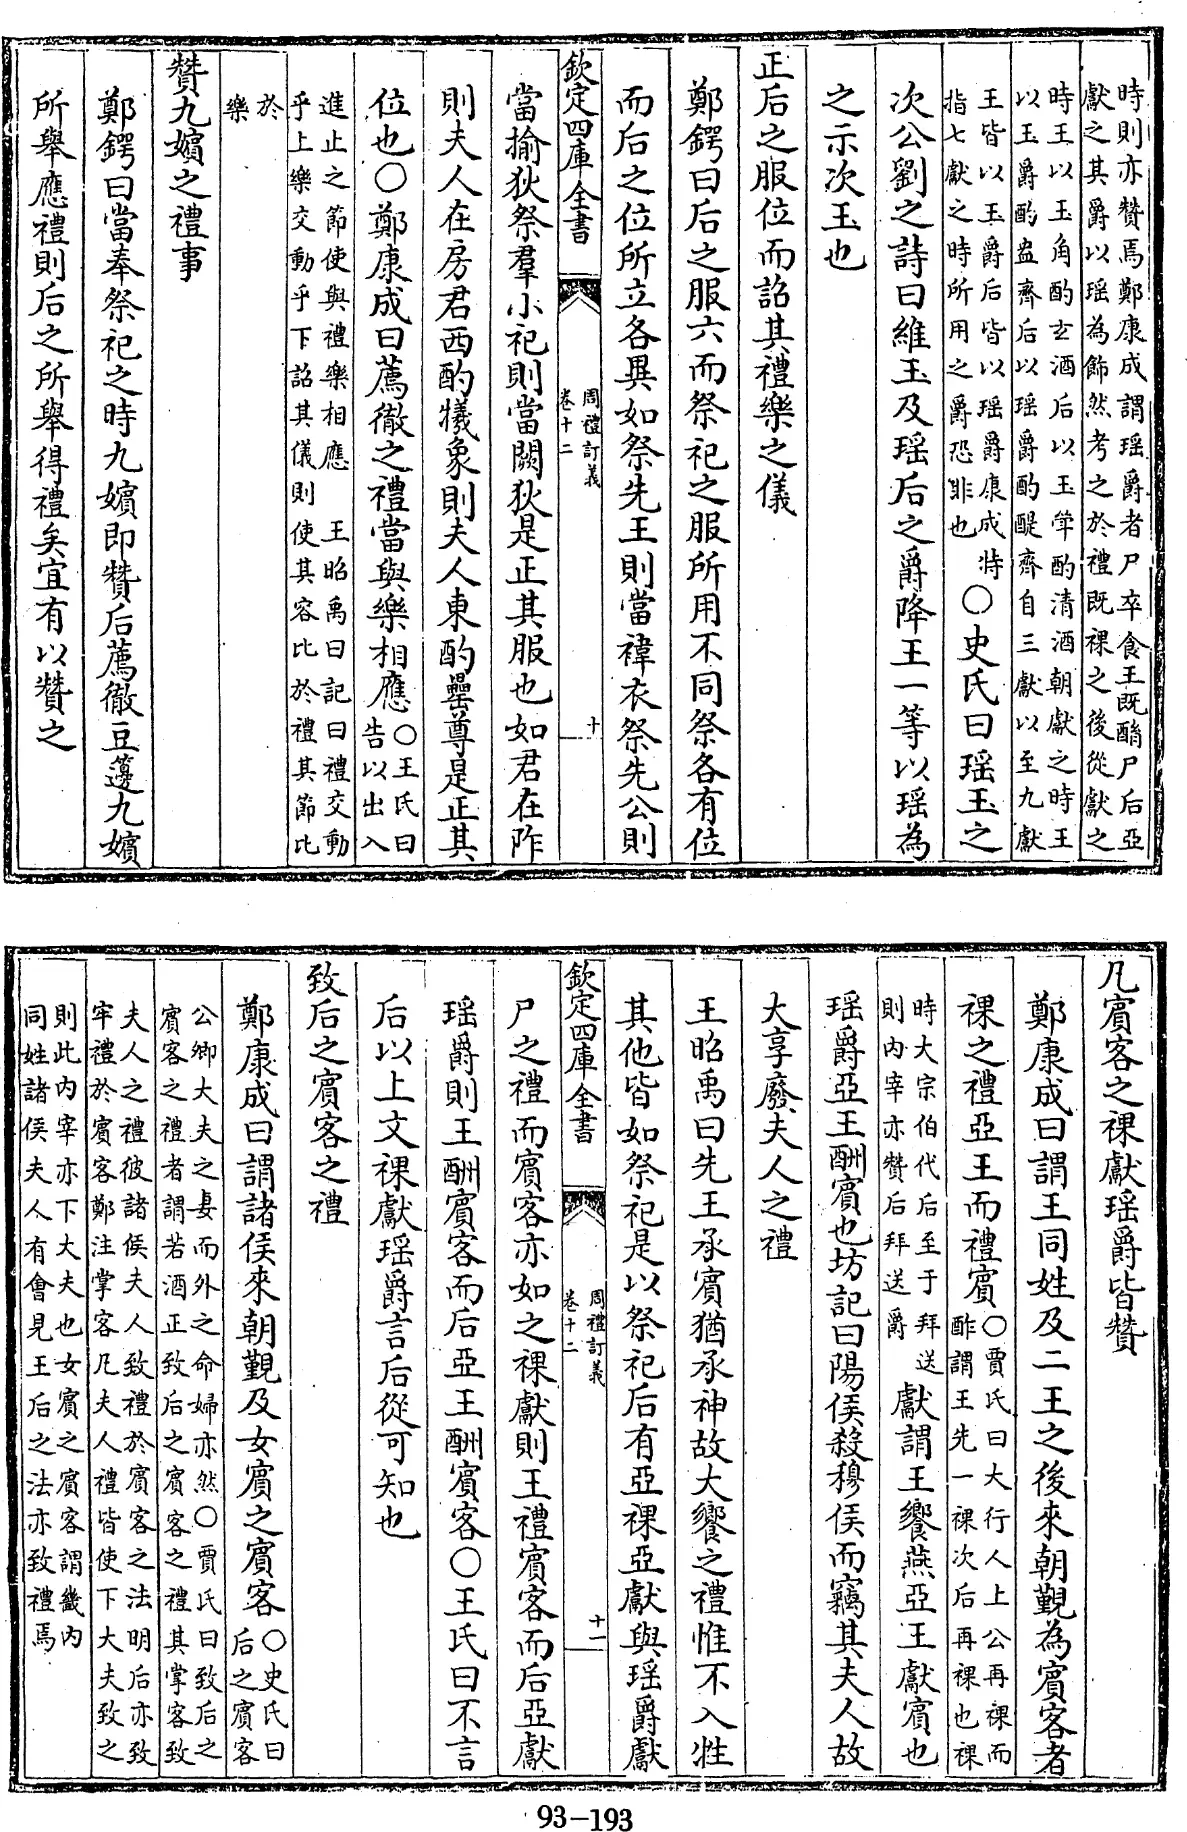 時則亦贊焉鄭康成謂瑶爵者尸卒食王既酳尸后亞
獻之其爵以瑶為飾然考之於禮既祼之後從獻之
時王以玉角酌𤣥酒后以玉斝酌清酒朝獻之時王
以玉爵酌盎齊后以瑶爵酌醍齊自三獻以至九獻
王皆以玉爵后皆以瑶爵康成特
指七獻之時所用之爵恐非也
○史氏曰瑶玉之
次公劉之詩曰維玉及瑶后之爵降王一等以瑶為
之示次玉也
正后之服位而詔其禮樂之儀
鄭鍔曰后之服六而祭祀之服所用不同祭各有位
而后之位所立各異如祭先王則當褘衣祭先公則
欽定四庫全書
周禮訂義
卷十二
十
當揄狄祭羣小祀則當闕狄是正其服也如君在阼
則夫人在房君西酌犧象則夫人東酌罍尊是正其
位也○鄭康成曰薦徹之禮當與樂相應
○王氏曰
告以出入
進止之節使與禮樂相應 王昭禹曰記曰禮交動
乎上樂交動乎下詔其儀則使其容比於禮其節比
於
樂
贊九嬪之禮事
鄭鍔曰當奉祭祀之時九嬪即贊后薦徹豆籩九嬪
所舉應禮則后之所舉得禮矣宜有以贊之
凡賓客之祼獻瑶爵皆贊
鄭康成曰謂王同姓及二王之後來朝覲為賓客者
祼之禮亞王而禮賓
○賈氏曰大行人上公再祼而
酢謂王先一祼次后再祼也祼
時大宗伯代后至于拜送
則内宰亦贊后拜送爵
獻謂王饗燕亞王獻賓也
瑶爵亞王酬賓也坊記曰陽侯殺穆侯而竊其夫人故
大享廢夫人之禮
王昭禹曰先王承賓猶承神故大饗之禮惟不入牲
其他皆如祭祀是以祭祀后有亞祼亞獻與瑶爵獻
欽定四庫全書
周禮訂義
卷十二
十一
尸之禮而賓客亦如之祼獻則王禮賓客而后亞獻
瑶爵則王酬賓客而后亞王酬賓客○王氏曰不言
后以上文祼獻瑶爵言后從可知也
致后之賓客之禮
鄭康成曰謂諸侯來朝覲及女賓之賓客
○史氏曰
后之賓客
公卿大夫之妻而外之命婦亦然○賈氏曰致后之
賓客之禮者謂若酒正致后之賓客之禮其掌客致
夫人之禮彼諸侯夫人致禮於賓客之法明后亦致
牢禮於賓客鄭注掌客凡夫人禮皆使下大夫致之
則此内宰亦下大夫也女賓之賓客謂畿内
同姓諸侯夫人有會見王后之法亦致禮焉
93-193